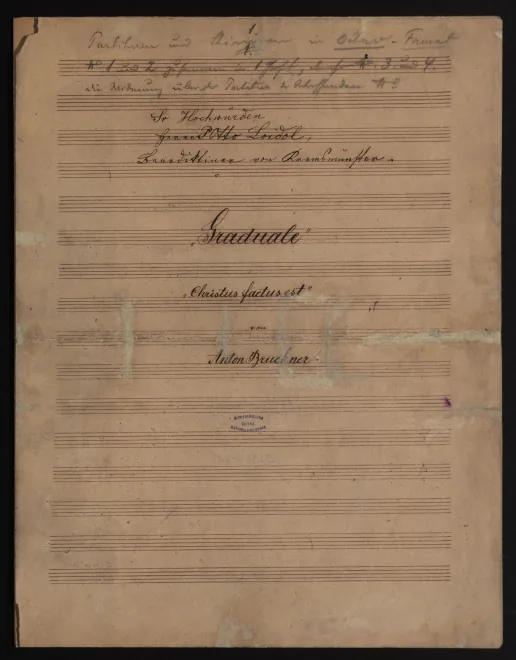 1.
Partituren und Stimmen in Octav-Format
No 1 und 2 zusammen in 1 Heft, No 3 und 4.
die Widmung über der Partitur
Sr Hochwürden
Herrn P. Otto Loidol,
Benediktiner von Kremsmünster.
„Graduale"
„Christus factus est"
von
Anton Bruckner.